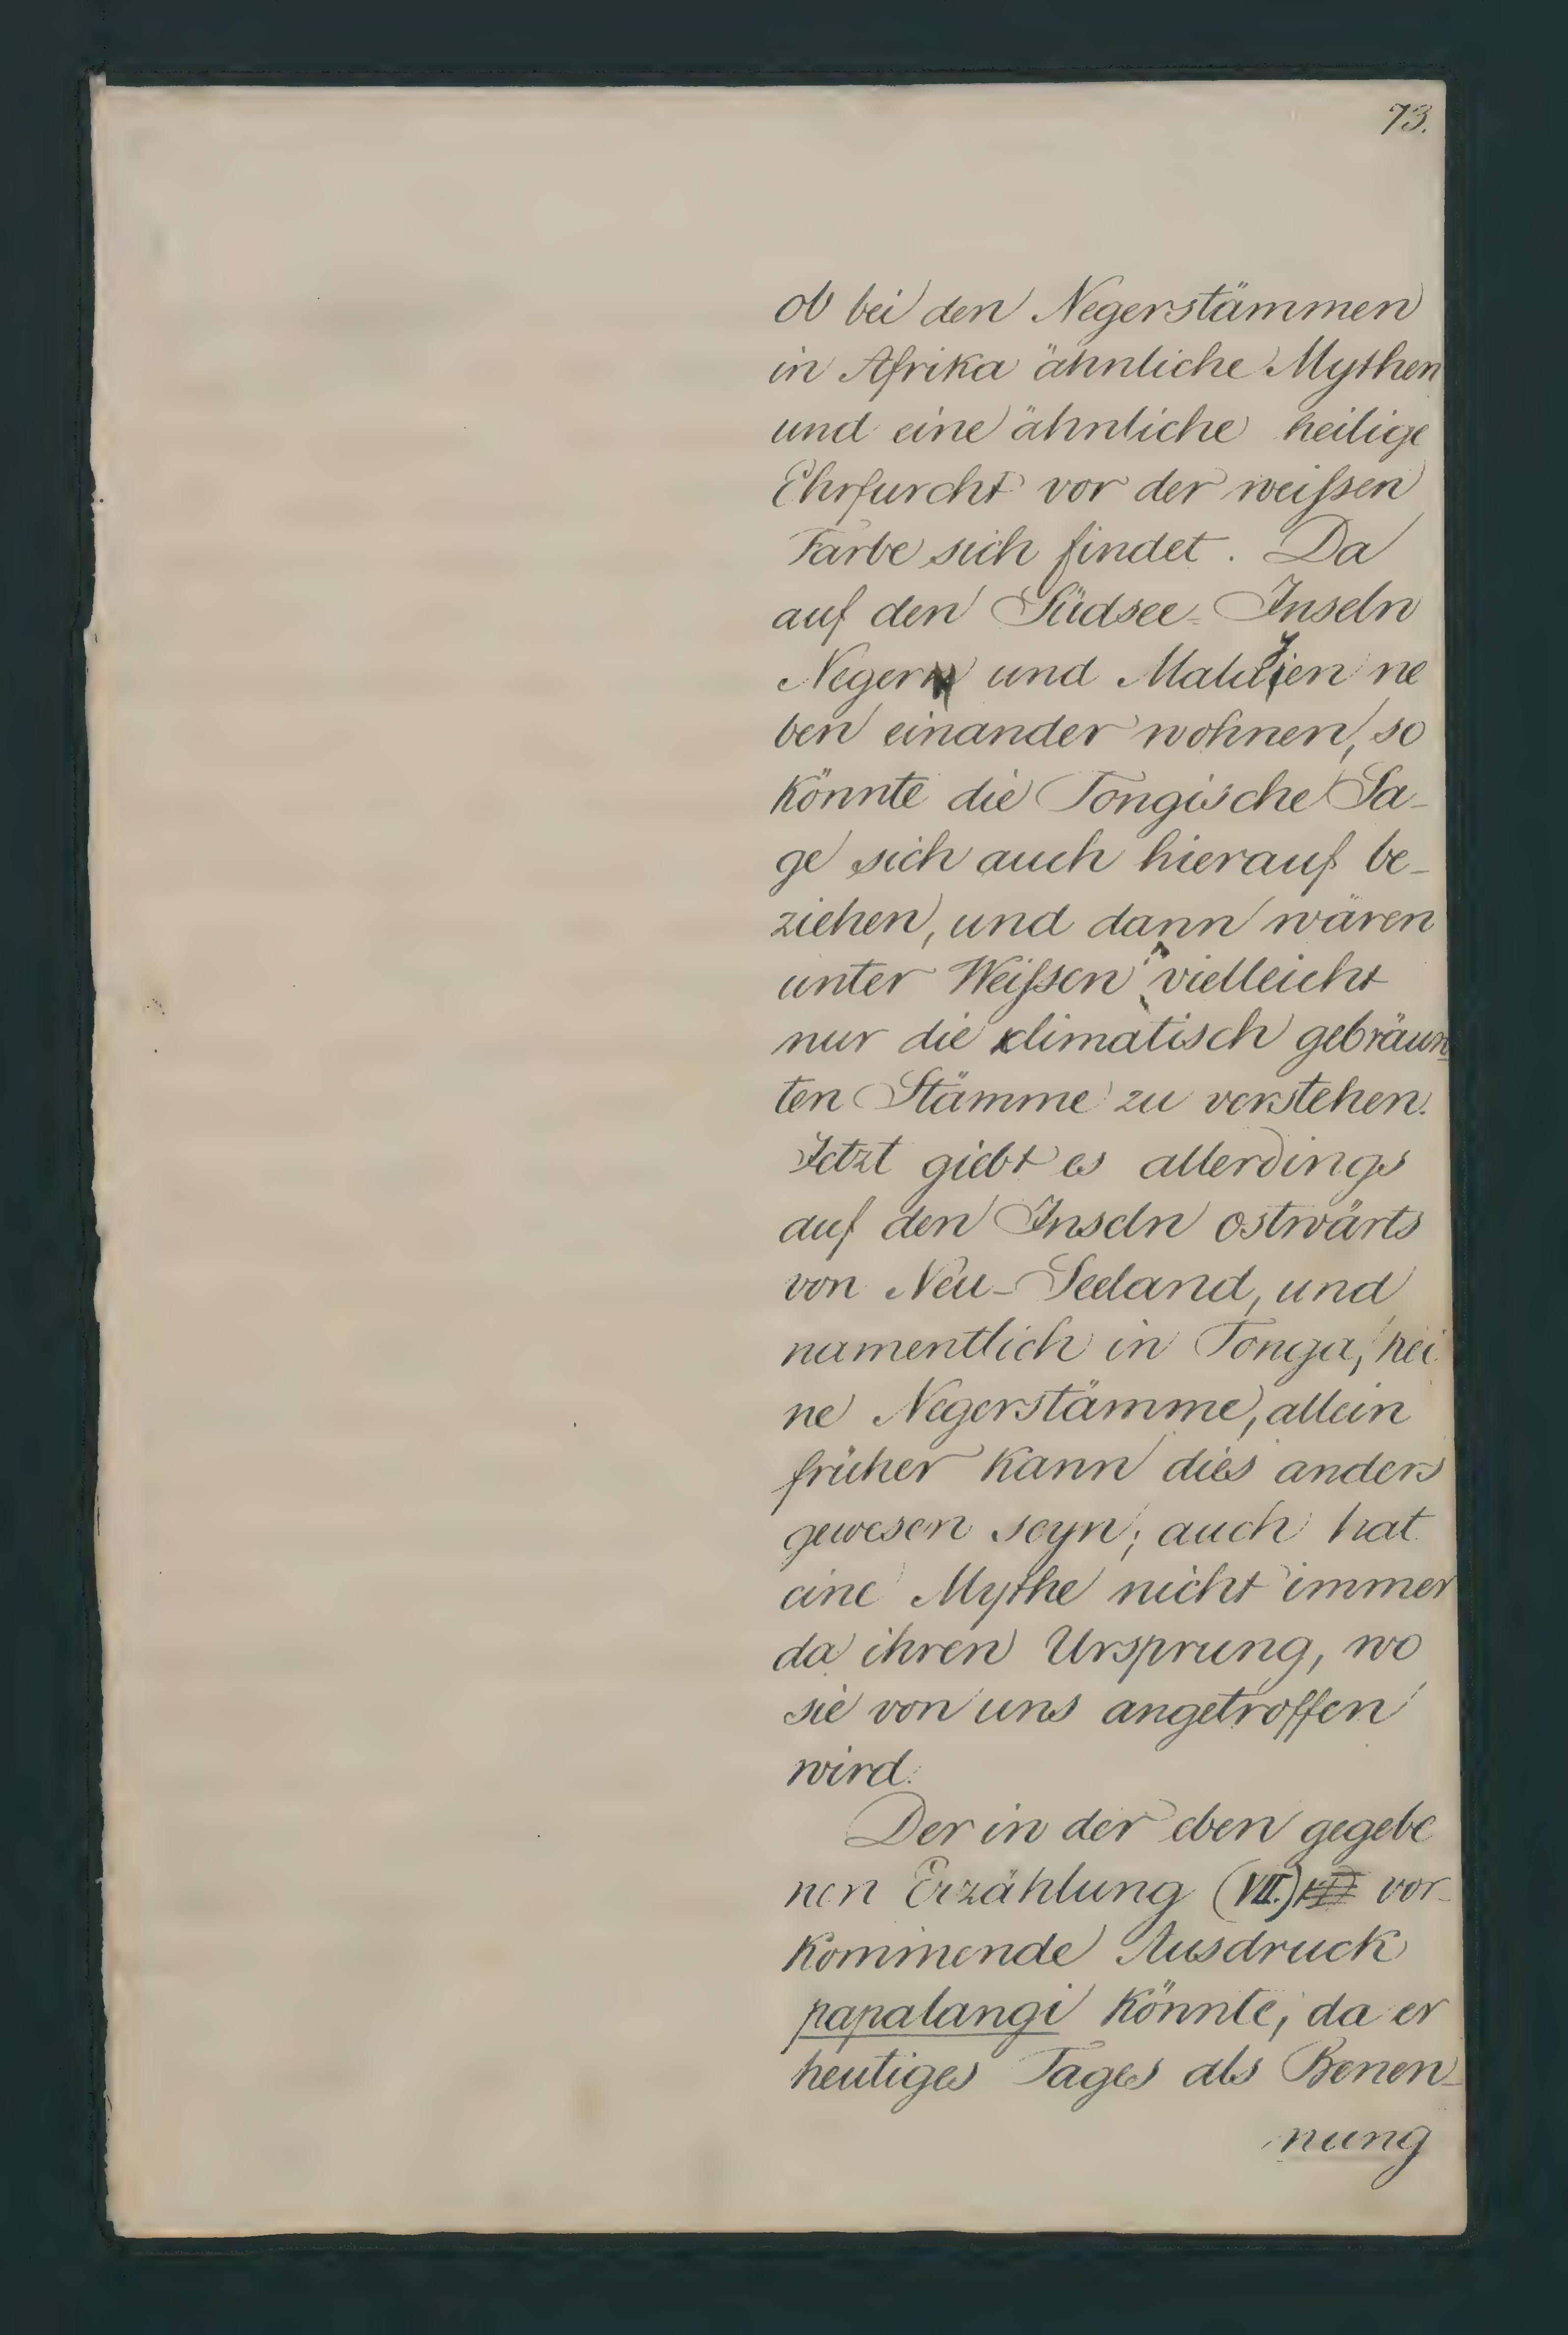 73.
ob bei den Negerstämmen
in Afrika ähnliche Mythen
und eine ähnliche heilige
Ehrfurcht vor der weißsen
Farbe sich findet. Da
auf den Südsee-Inseln
Neger und Malayen ne
ben einander wohnen, so
könnte die Tongische Sa-
ge sich auch hierauf be-
ziehen, und dann wären
unter Weißsen vielleicht
nur die klimatisch gebräun
ten Stämme zu verstehen.
Jetzt giebt es allerdings
auf den Inseln ostwärts
von Neu-Seeland, und
namentlich in Tonga, kei
ne Negerstämme, allein
früher kann dies anders
gewesen seyn; auch hat
eine Mythe nicht immer
da ihren Ursprung, wo
sie von uns angetroffen
wird.
Der in der eben gegebe
nen Erzählung (VII.) vor-
kommende Ausdruck
papalangi könnte, da er
heutiges Tages als Benen-
nung